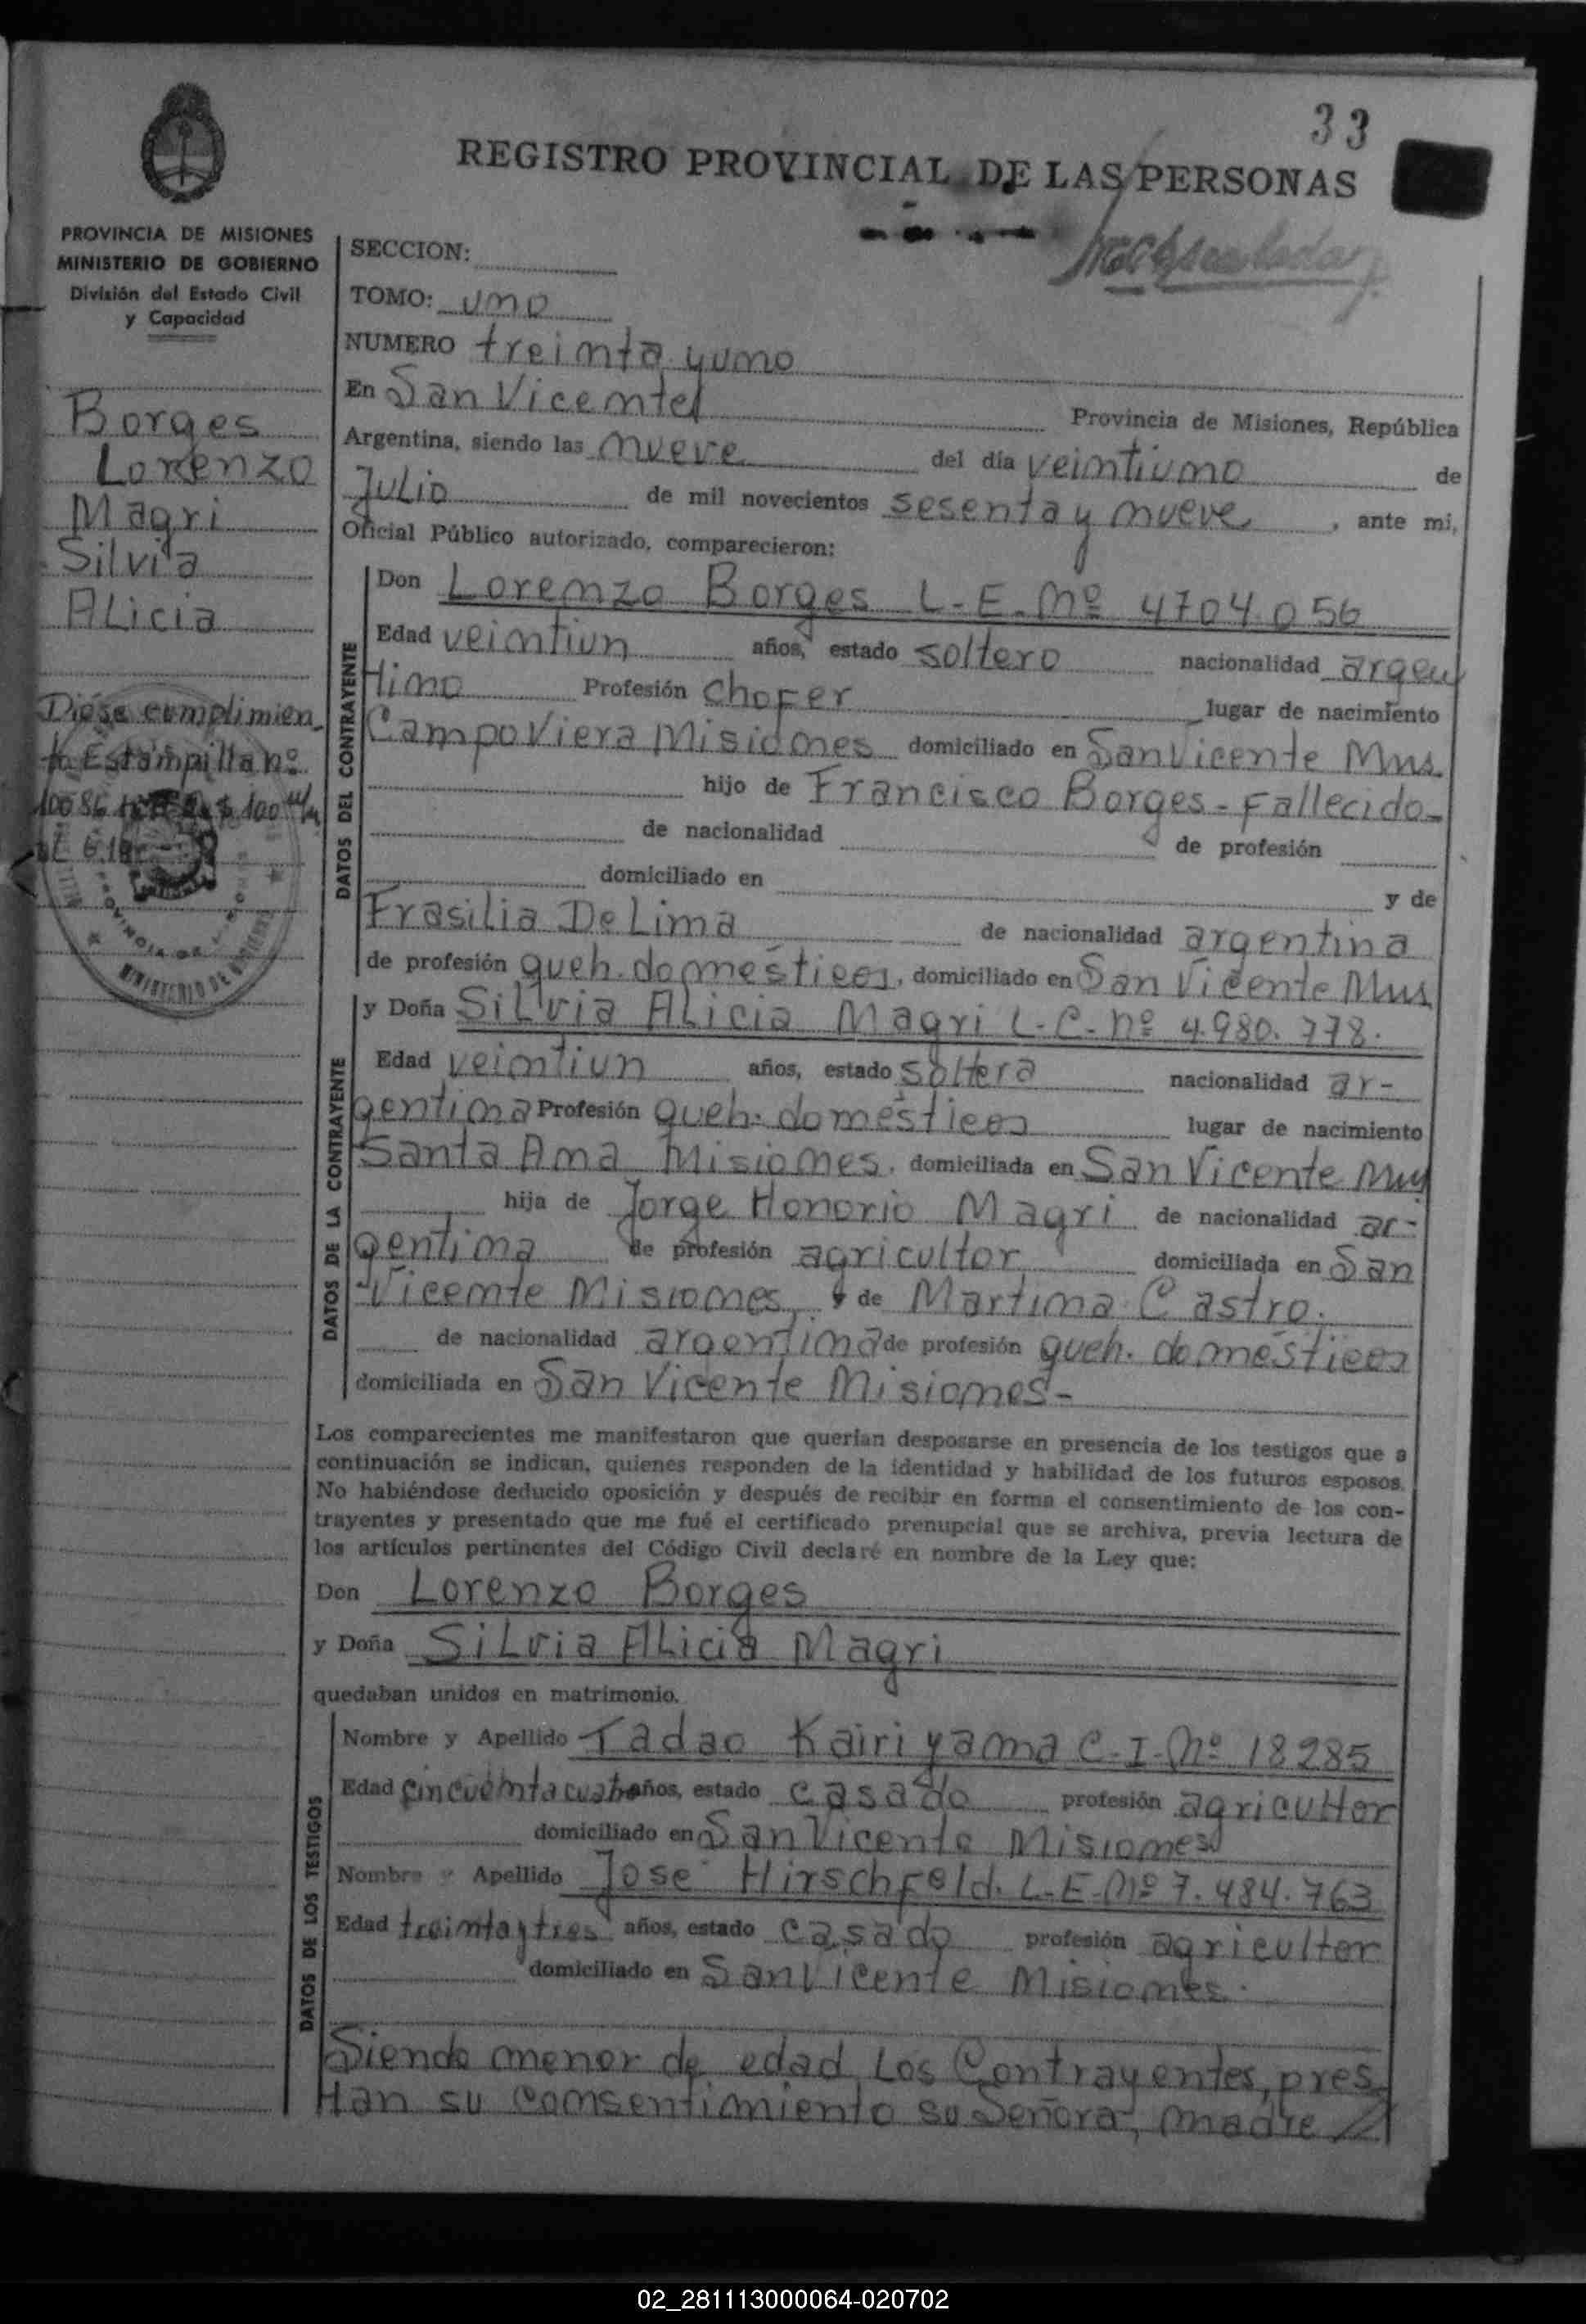 33
REGISTRO PROVINCIAL DE LAS PERSONAS
PROVINCIA DE MISIONES
MINISTERIO DE GOBIERNO
División del Estado Civil
y Capacidad
Borges
Lorenzo
Magri
Silvia
Alicia
Diose cumplimien
to Estampilla nº
10086
$ 100
SECCION:
TOMO: uno
NUMERO treinta y uno
En San Vicente Provincia de Misiones, República
Argentina, siendo las nueve del día veintiuno de
Julio de mil novecientos sesenta y nueve, ante mi,
Oficial Público autorizado, comparecieron:
DATOS DEL CONTRAYENTE
Don Lorenzo Borges L-E-Nº 4704.056
Edad veintiun años, estado soltero nacionalidad argen
tino Profesión chofer lugar de nacimiento
Campo Viera Misiones domiciliado en San Vicente Mns
hijo de Francisco Borges-Fallecido-
de nacionalidad de profesión
domiciliado en y de
Frasilia De Lima de nacionalidad argentina
de profesión queh. domésticos, domiciliado en San Vicente Mns
DATOS DE LA CONTRAYENTE
y Doña Silvia Alicia Magri L-C-Nº 4.980.778.
Edad veintiun años, estado soltera nacionalidad ar-
gentina Profesión queh. domésticos lugar de nacimiento
Santa Ana Misiones. domiciliada en San Vicente Mns
hija de Jorge Honorio Magri de nacionalidad ar-
gentina de profesión agricultor domiciliada en San
Vicente Misiones, y de Martina Castro.
de nacionalidad argentina de profesión queh. domésticos
domiciliada en San Vicente Misiones-
Los comparecientes me manifestaron que querían desposarse en presencia de los testigos que a
continuación se indican, quienes responden de la identidad y habilidad de los futuros esposos.
No habiéndose deducido oposición y después de recibir en forma el consentimiento de los con-
trayentes y presentado que me fué el certificado prenupcial que se archiva, previa lectura de
los artículos pertinentes del Código Civil declaré en nombre de la Ley que:
Don Lorenzo Borges
y Doña Silvia Alicia Magri
quedaban unidos en matrimonio.
DATOS DE LOS TESTIGOS
Nombre y Apellido Tadao Kairiyama C-I-Nº 18285
Edad cincuentacuatro años, estado casado profesión agricultor
domiciliado en San Vicente Misiones
Nombre y Apellido José Hirschfeld. L-E-Nº 7.484.763
Edad treintaytres años, estado casado profesión agricultor
domiciliado en San Vicente Misiones.
Siendo menor de edad Los Contrayentes, pres
tan su consentimiento su Señora, madre //
02_281113000064-020702